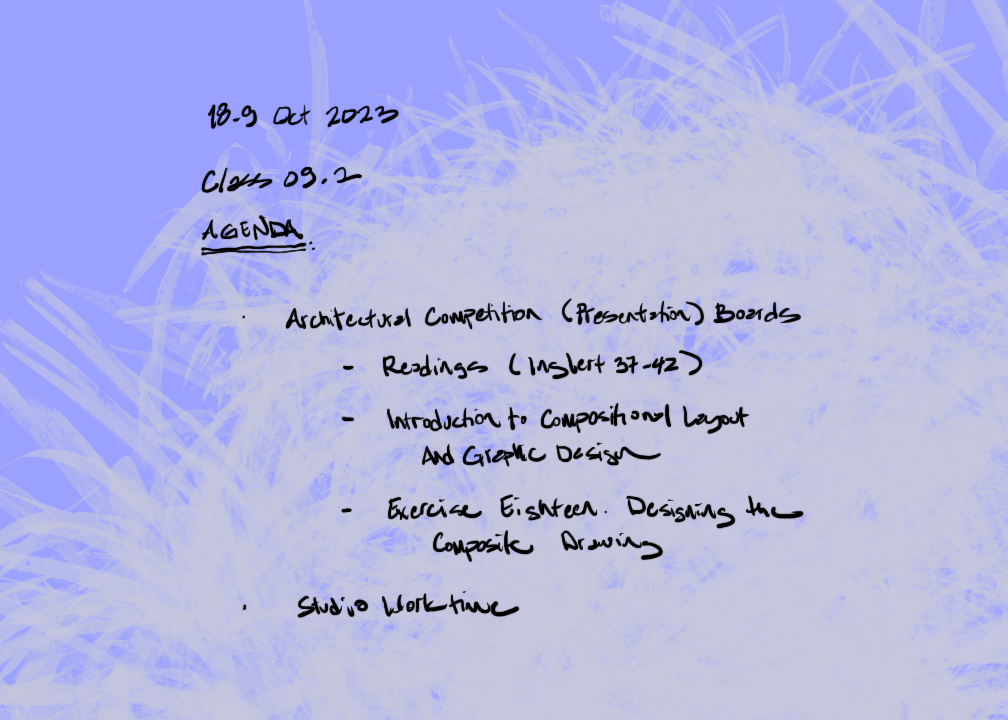 18-9 Oct 2023
Class 09.2
AGENDA:
· Architectural Competition (Presentation) Boards
- Readings (Inglert 37-42)
- Introduction to Compositional Layout
And Graphic Design
- Exercise Eighteen. Designing the
Composite Drawing
· Studio Worktime